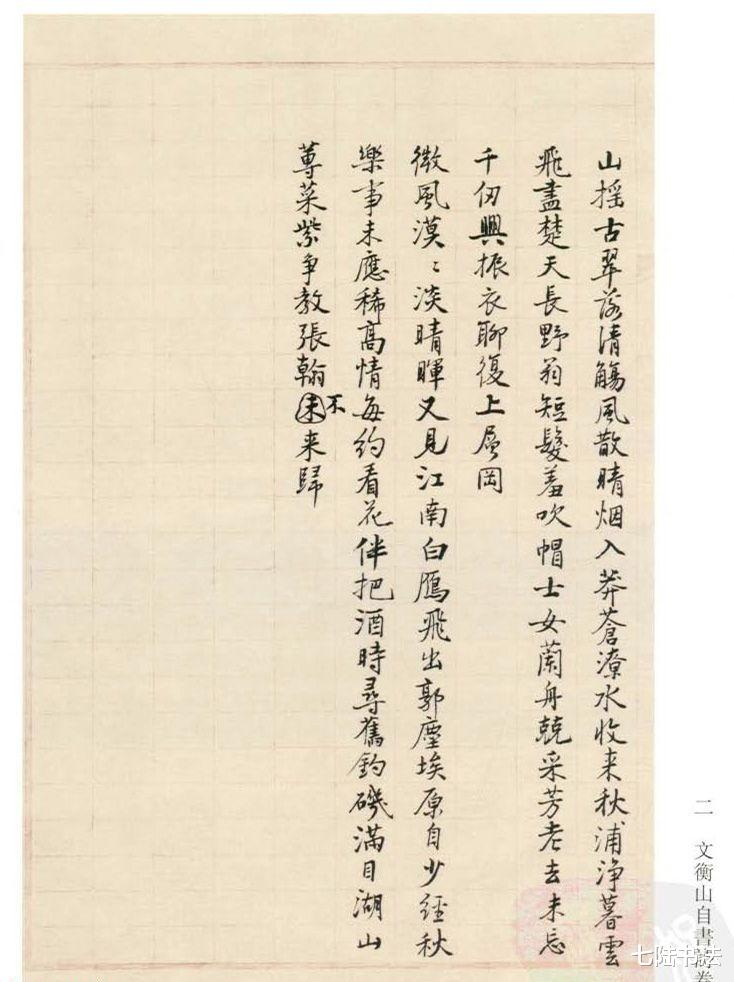 山摇古翠落清觞風散晴烟入莽蒼潦水收来秋浦浄暮雲
飛盡楚天長野翁短髮羞吹帽士女蘭舟兢采芳老去未忘
千仞興振衣聊復上層岡
微風漠〻淡晴暉又見江南白鴈飛出郭塵埃原自少經秋
樂事未應稀高情每約看花伴把酒時尋舊釣磯滿目湖山
蓴菜紫争教張翰未不来歸
二 文衡山自書詩卷
七陆书法